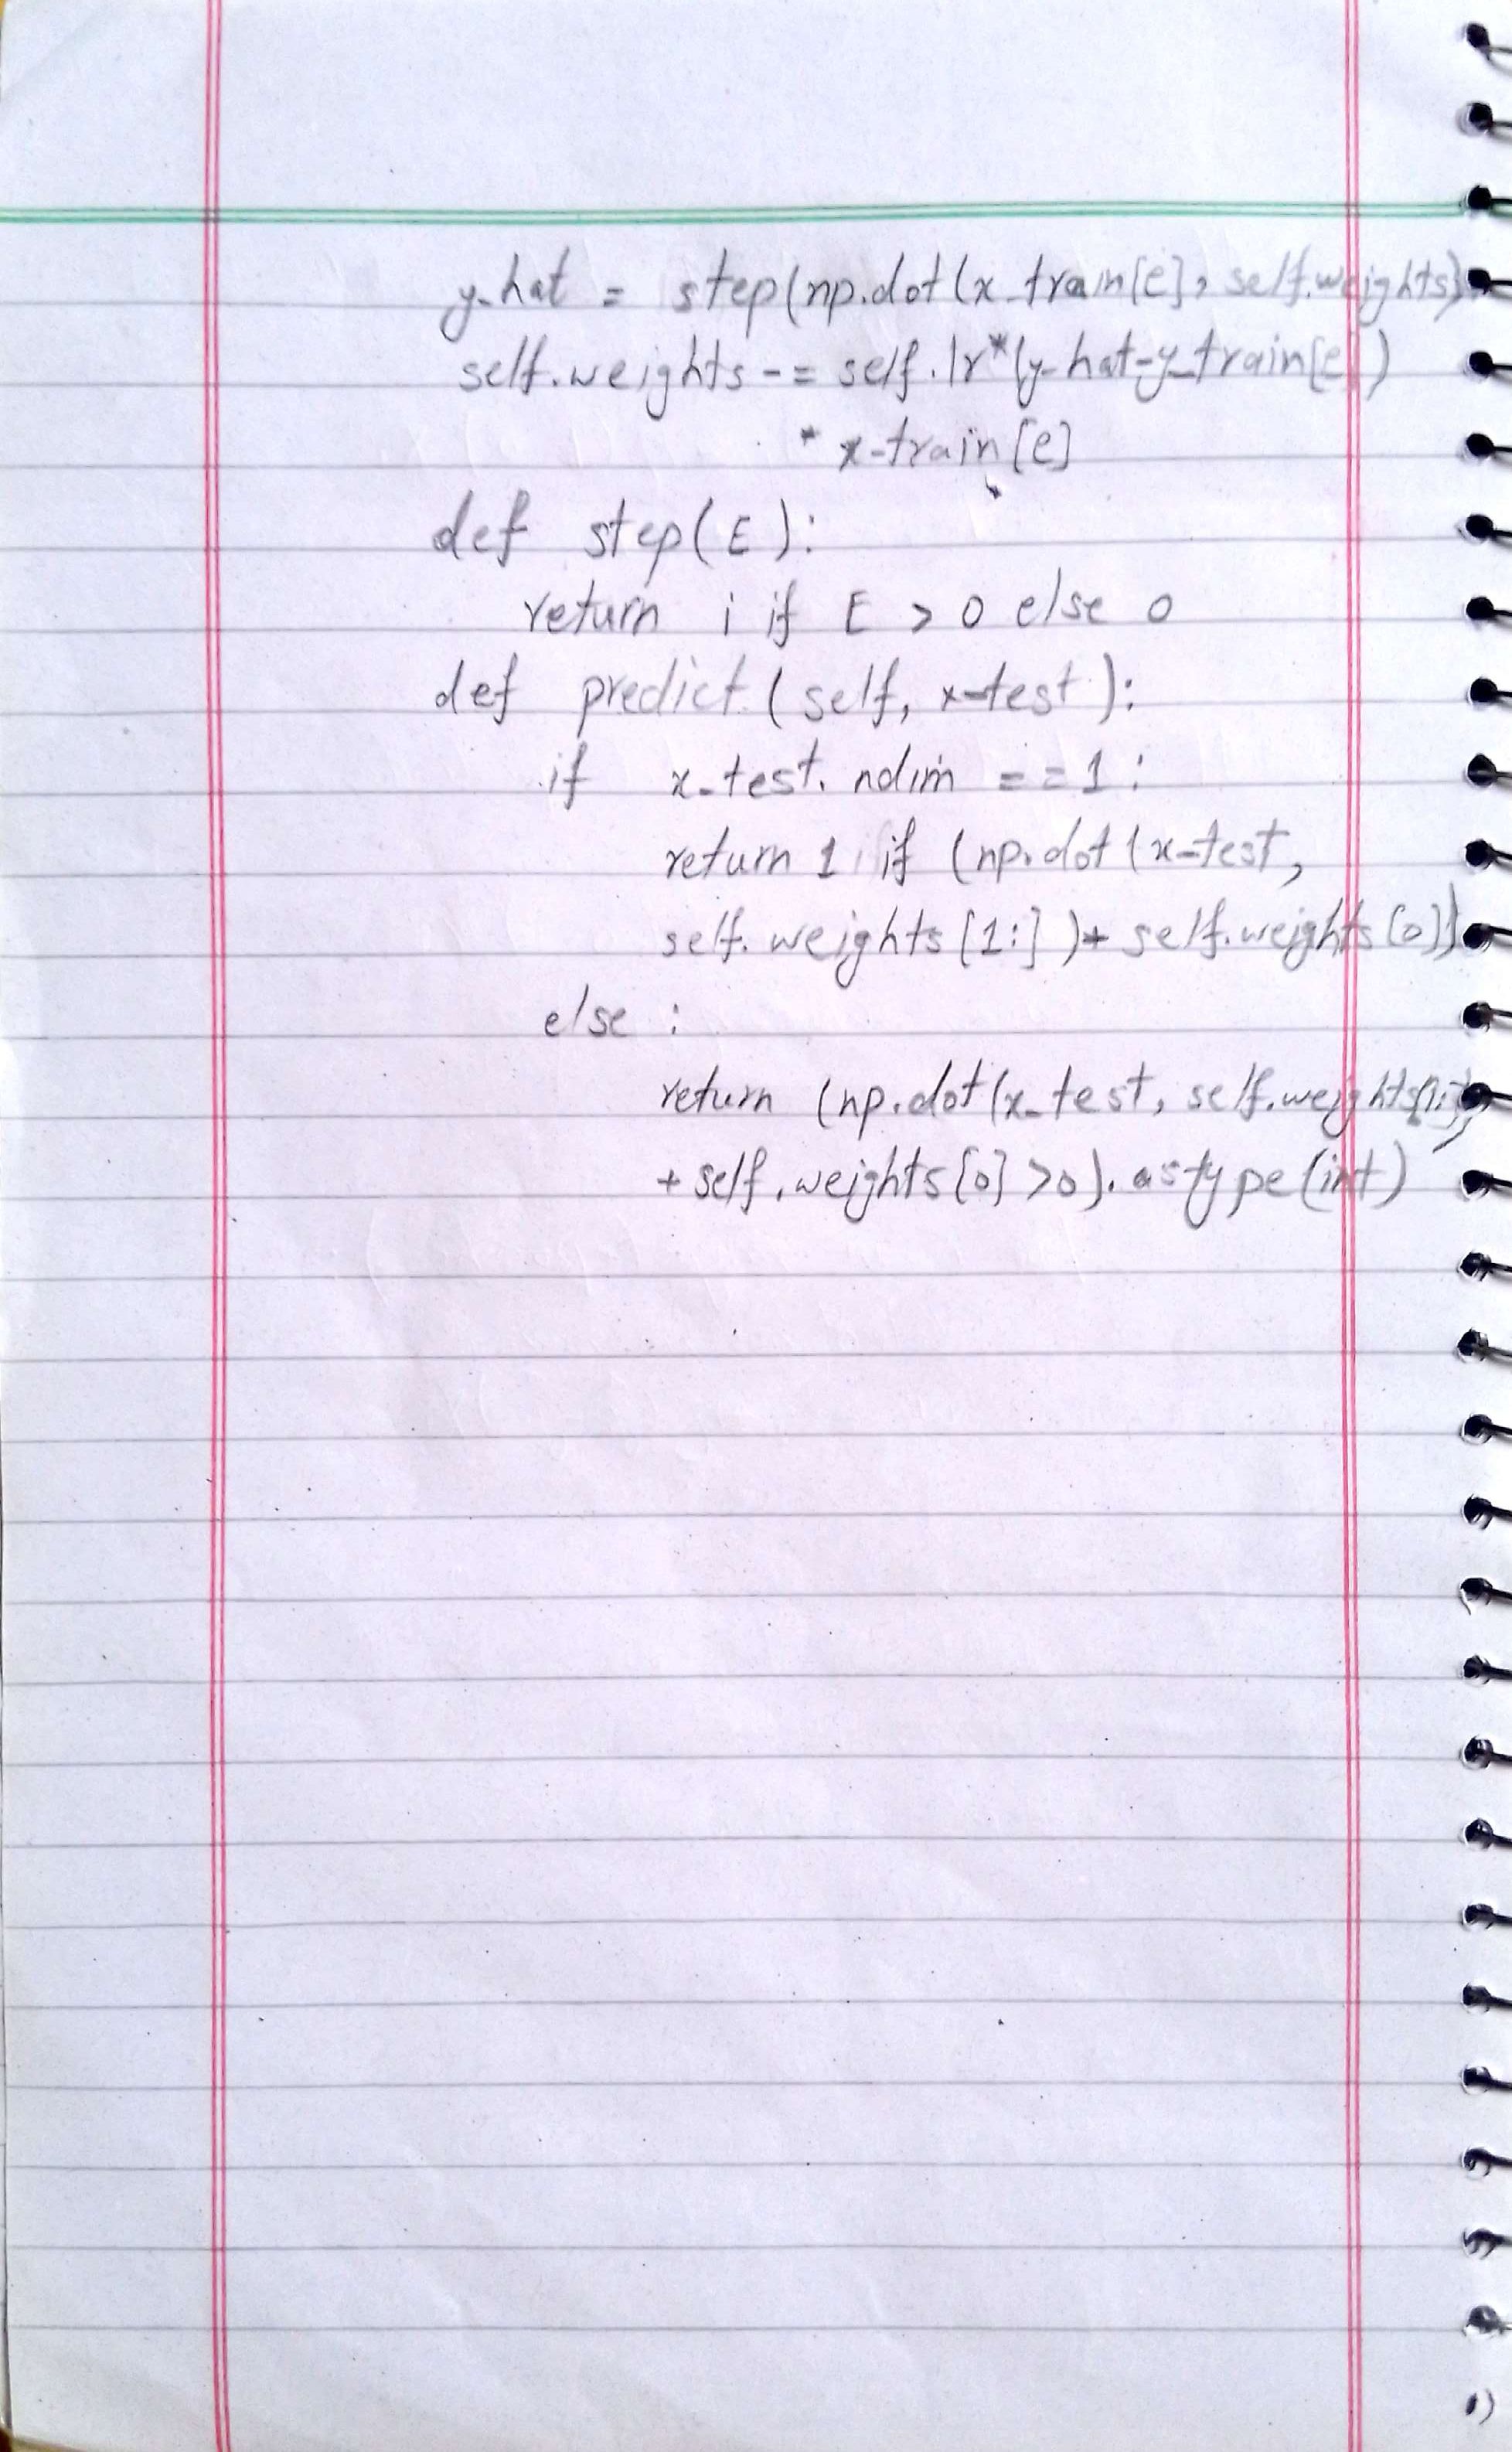 y_hat = step(np.dot(x_train[e], self.weights)
self.weights -= self.lr*(y-hat-y_train[e])
* x-train[e]
def step(E):
return i if E > 0 else 0
def predict(self, x-test):
if x_test.ndim ==1:
return 1 if (np.dot(x-test,
self.weights[1:])+ self.weights[0])
else :
return (np.dot(x_test, self.weights[1:])
+ self.weights[0] >0).astype(int)